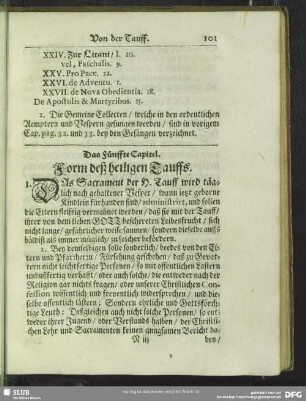 Von der Tauff. 101
XXIV. Zur Litani/ l. 20.
vel, Paschalis. 9.
XXV. Pro Pace. 22.
XXVI. de Adventu. 1.
XXVII. de Nova Obedientia. 18.
De Apostolis & Martyribus. 15.
2. Die Gemeine Collecten/ welche in den ordentlichen
Aemptern und Vespern gesungen werden/ sind in vorigem
Cap. pag. 32. und 33. bey den Gesängen verzeichnet.
Das Fünffte Capitel.
Form deß heiligen Tauffs.
1. DAs Sacrament der H. Tauff wird täg-
lich nach gehaltener Vesper/ wann jetzt geborne
Kindlein fürhanden sind/ administriret, und sollen
die Eltern fleissig vermahnet werden/ daß sie mit der Tauff/
ihrer von dem lieben GOTT bescherten Leibesfrucht/ sich
nicht lange/ gefährlicher weise saumen/ sondern dieselbe auffs
bäldist als immer müglich/ zu solcher befördern.
2. Bey demselbigen solle sonderlich/ beedes von den El-
tern und Pfarrherrn/ Fürsehung geschehen/ daß zu Gevat-
tern nicht leichtfertige Personen/ so mit offentlichen Lastern
unbußfertig verhafft/ oder auch solche/ die entweder nach der
Religion gar nichts fragen/ oder unserer Christlichen Con-
fession wissentlich und freventlich widersprechen/ und die-
selbe offentlich lästern; Sondern ehrliche und Gottsförch-
tige Leuth: Deßgleichen auch nicht solche Personen/ so ent-
weder ihrer Jugend/ oder Verstands halben/ der Christli-
chen Lehr und Sacramenten keinen gnugsamen Bericht ha-
N iij ben/
SLUB
DFG